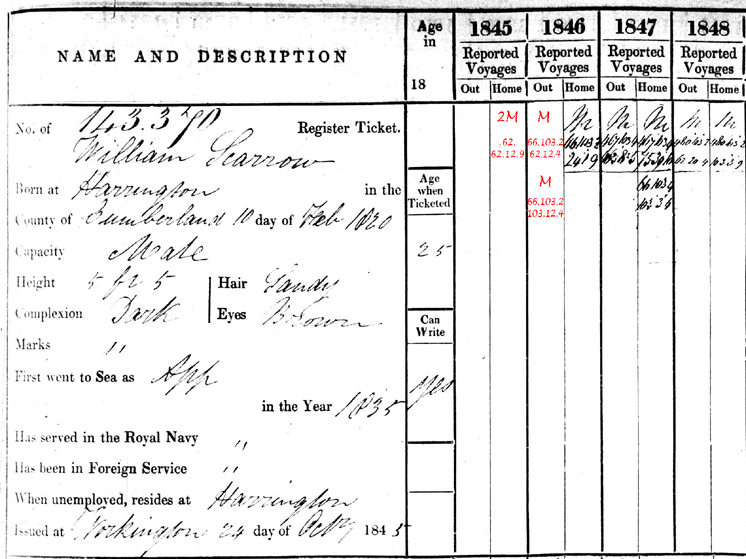 NAME AND DESCRIPTION
Age in 18
1845 1846 1847 1848
Reported Voyages Reported Voyages Reported Voyages Reported Voyages
Out Home Out Home Out Home Out Home
No. of 143.370 Register Ticket.
William Scarrow
Born at Harrington in the
County of Cumberland 10 day of Feb 1820
Capacity Mate
Height 5 ft 5 Hair Sandy
Complexion Dark Eyes Brown
Marks "
First went to Sea as App
in the Year 1835
Has served in the Royal Navy "
Has been in Foreign Service "
When unemployed, resides at Harrington
Issued at Workington 24 day of Octr 1845
Age when Ticketed
25
Can Write
yes
2M M M M M M M
.62. 66.103.2
62.12.9 62.12.4
M
66.103.2
103.12.4